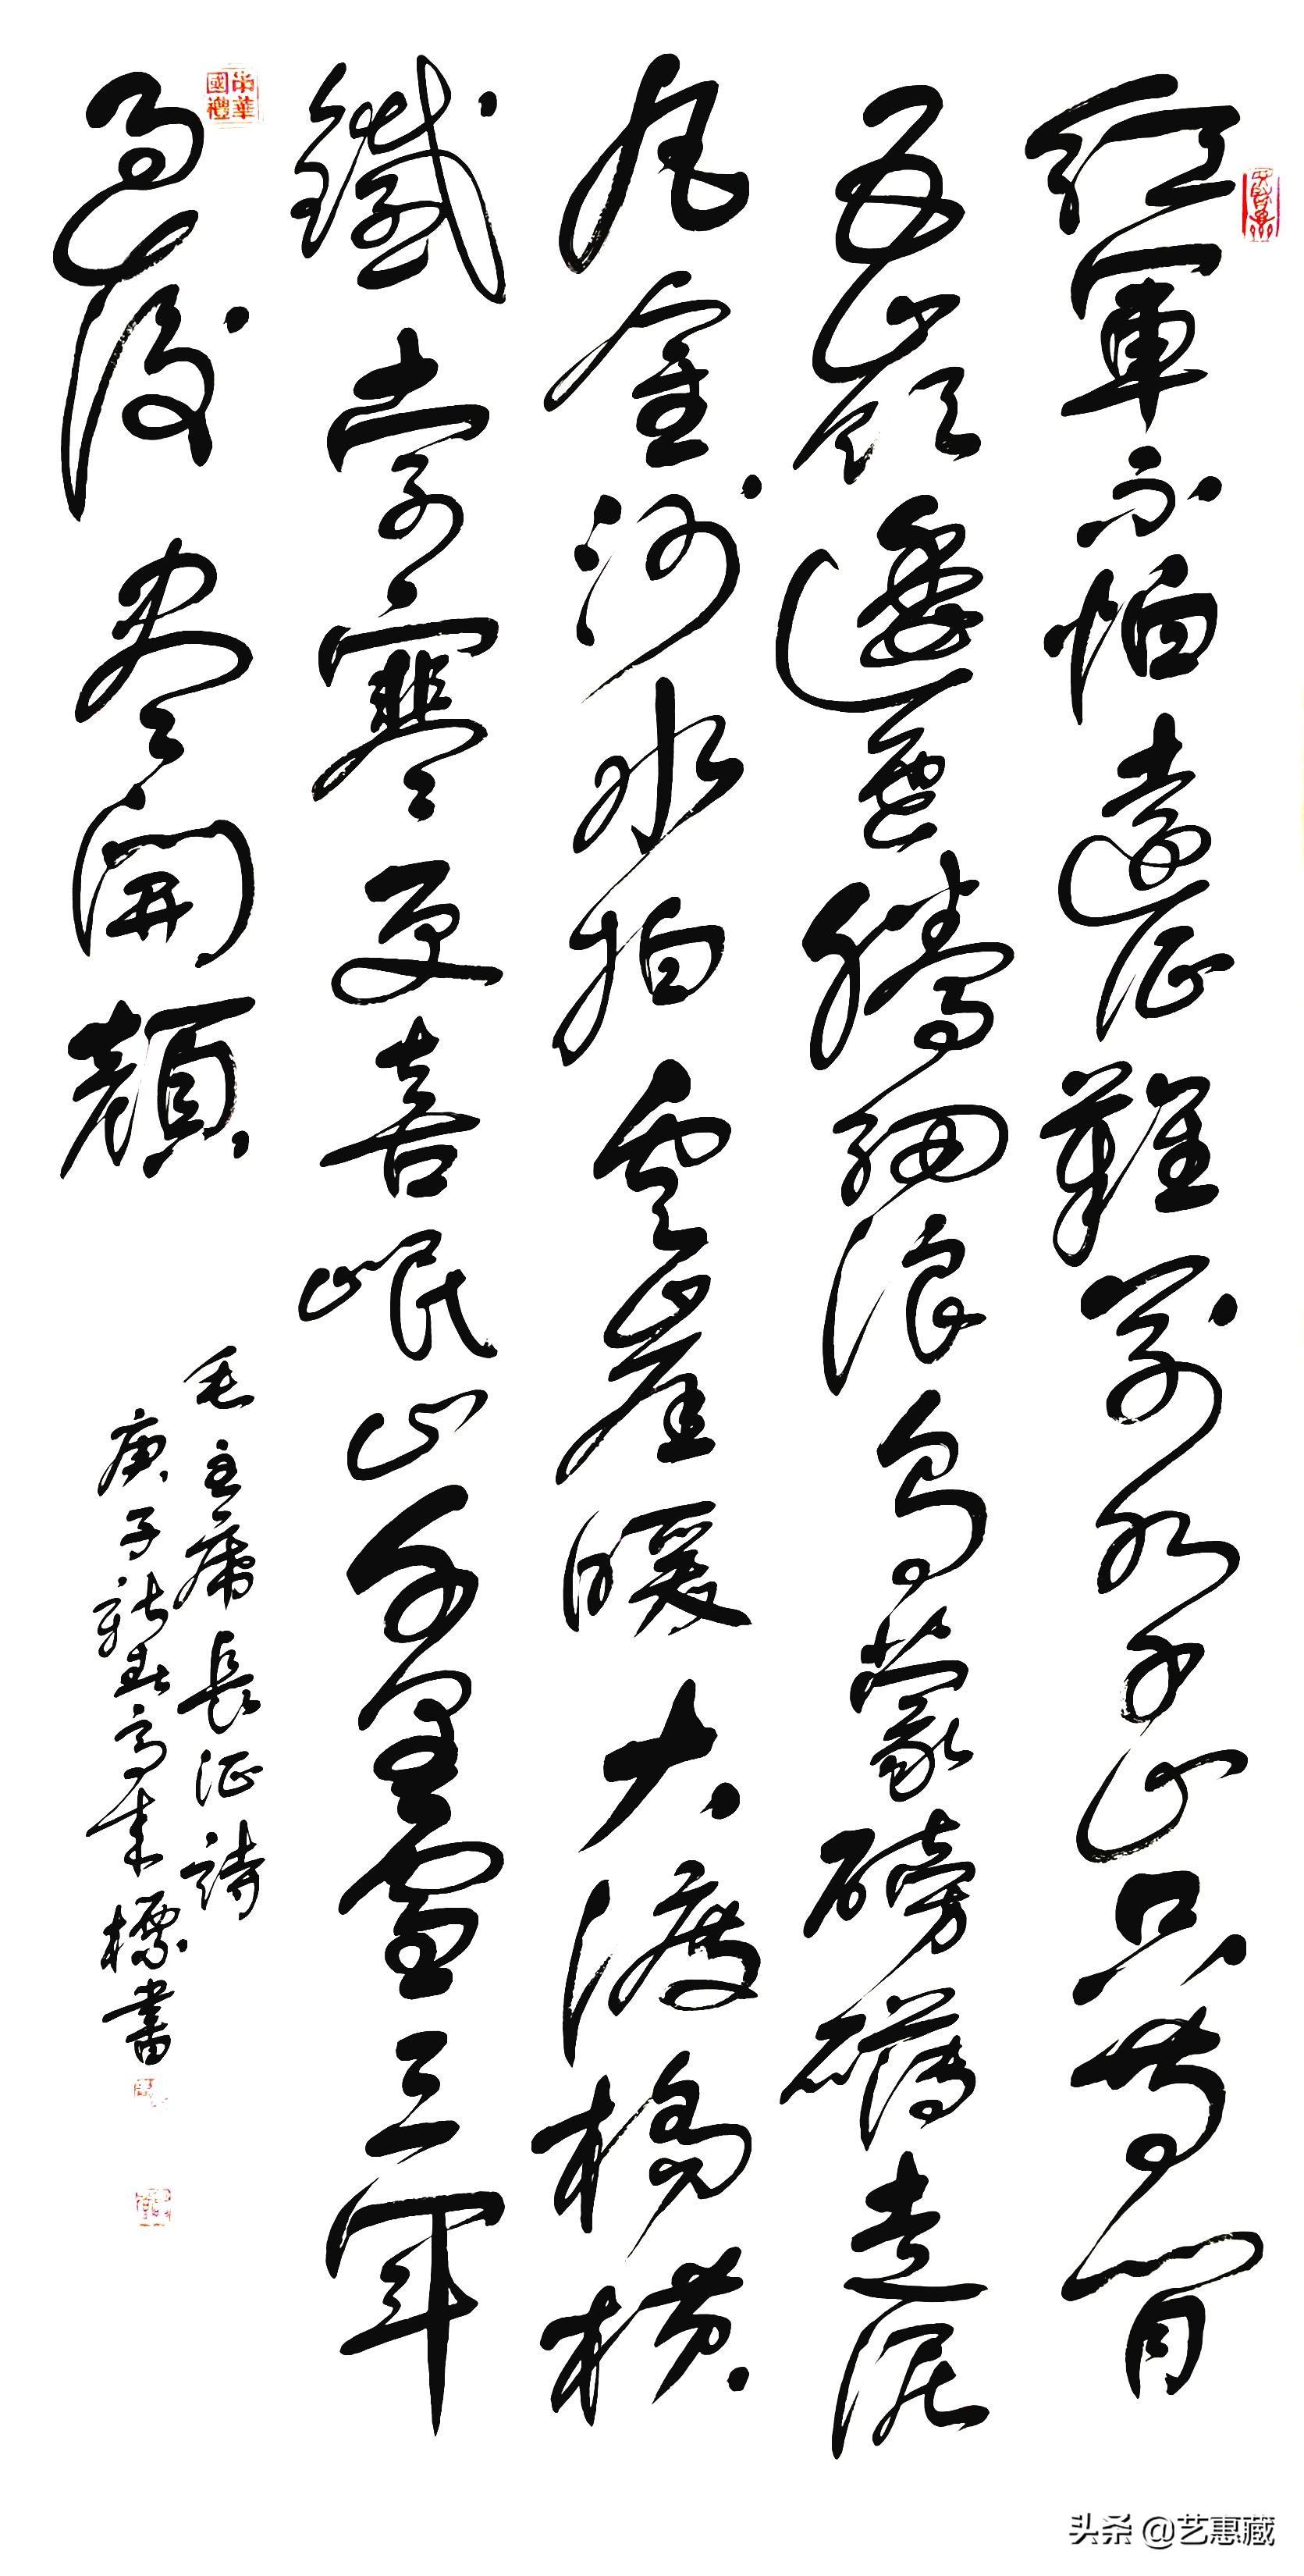 紅軍不怕遠征難萬水千山只等閒
五嶺逶迤騰細浪烏蒙磅礴走泥
丸金沙水拍雲崖暖大渡橋橫
鐵索寒更喜岷山千里雪三軍
過後盡開顏
毛主席長征詩
庚子新春高標書
中華國禮
头条 @艺惠藏